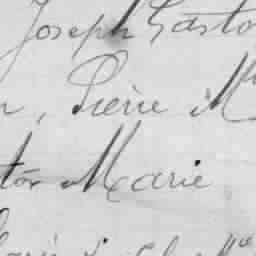 Joseph Gasto
n, Pierre M
tor Marie